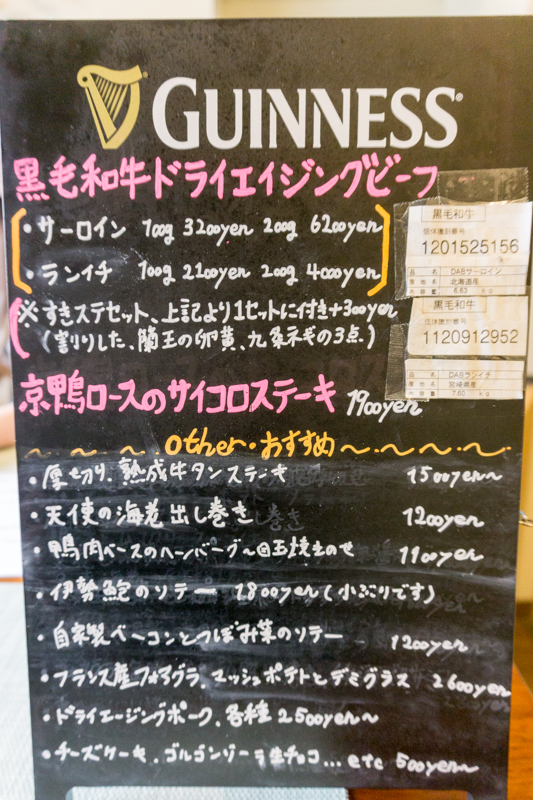 GUINNESS
黒毛和牛ドライエイジングビーフ
・サーロイン 100g 3200yen 200g 6200yen
・ランチ 100g 2100yen 200g 4000yen
※すきステセット、上記より1セットに付き+300yen
(割りした、蘭王の卵黄、九条ネギの3点)
黒毛和牛
個体識別番号
1201525156
品 名 DABサーロイン
産 地 北海道産
6.63 kg
黒毛和牛
個体識別番号
1120912952
品 名 DABランイチ
産 地 宮崎県産
7.60 kg
京鴨ロースのサイコロステーキ 1900yen
other・おすすめ
・厚切り、熟成牛タンステーキ 1500yen〜
・天使の海老出し巻き 1200yen
・鴨肉ベースのハンバーグ〜目玉焼きのせ 1100yen
・伊勢鮑のソテー 1800yen(小ぶりです)
・自家製ベーコンとつぼみ菜のソテー 1200yen
・フランス産フォアグラ、マッシュポテトとデミグラス 2600yen
・ドライエージングポーク、各種 2500yen〜
・チーズケーキ、ゴルゴンゾーラ生チョコ...etc 500yen〜